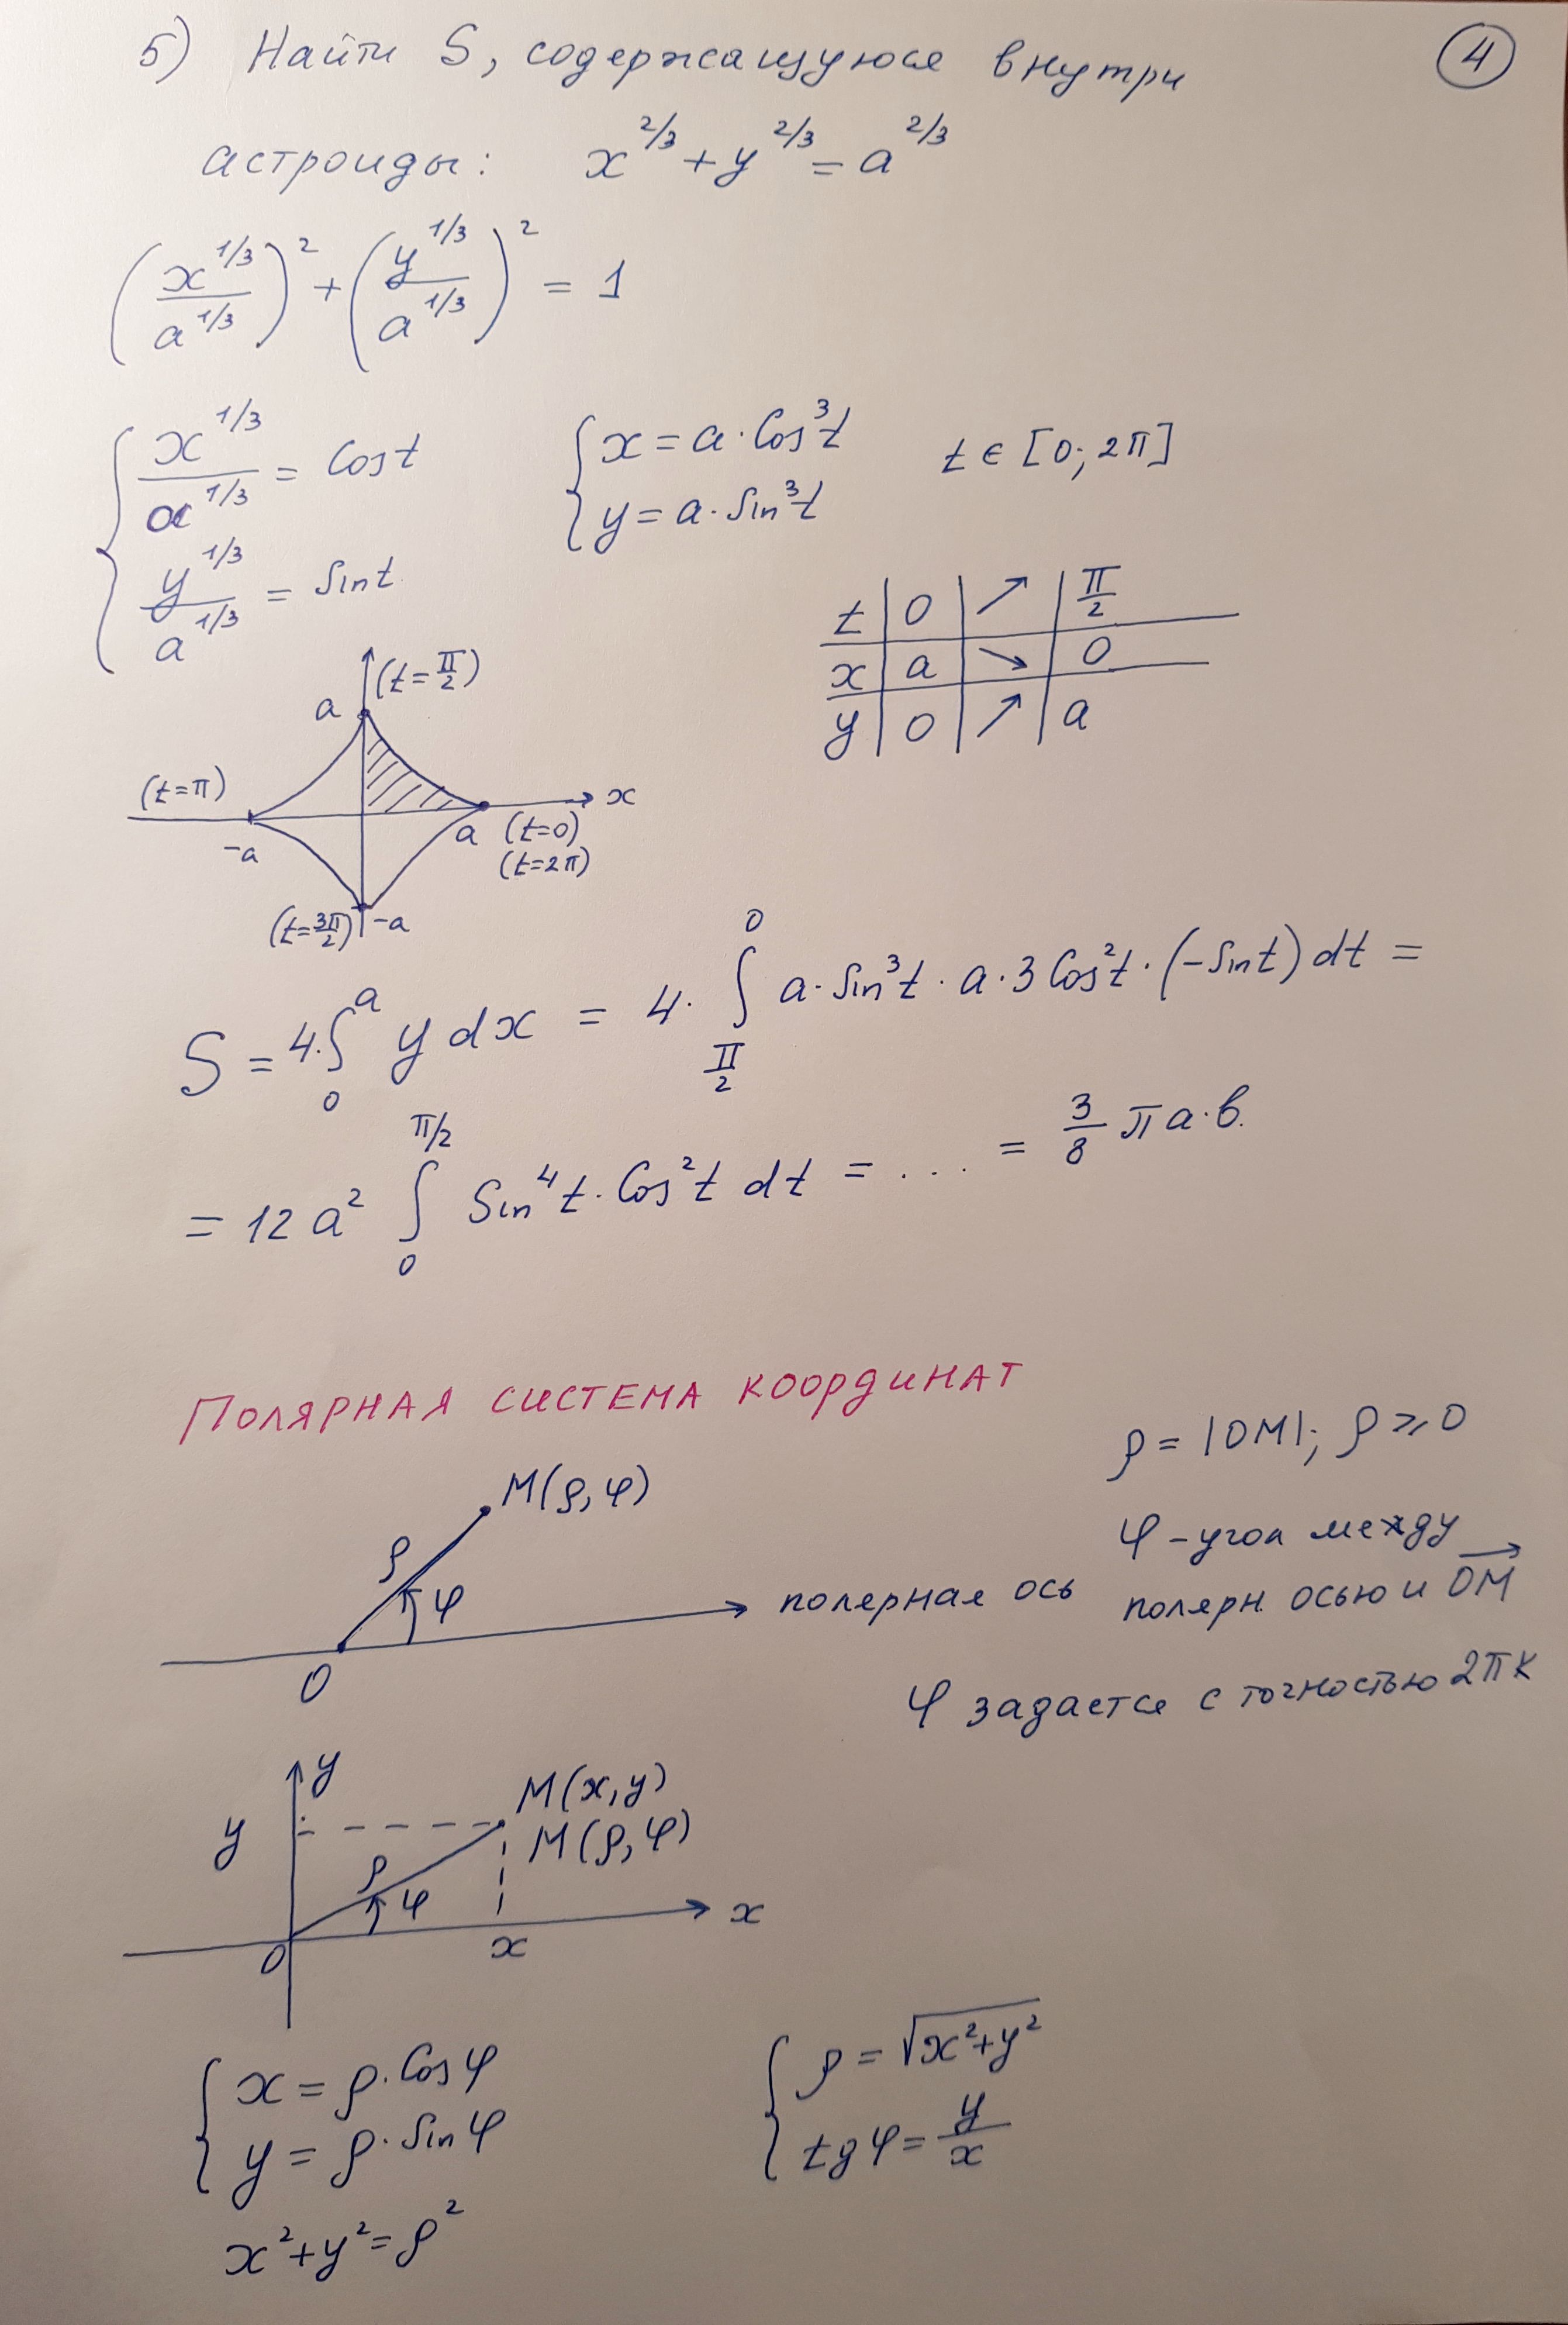 5) Найти S, содержащуюся внутри
4
астроиды: x^{2/3} + y^{2/3} = a^{2/3}
(x^{1/3}/a^{1/3})^2 + (y^{1/3}/a^{1/3})^2 = 1
{ x^{1/3}/a^{1/3} = Cos t
y^{1/3}/a^{1/3} = Sin t
{ x = a · Cos^3 t
y = a · Sin^3 t
t ∈ [0; 2π]
t | 0 | ↗ | π/2
x | a | ↘ | 0
y | 0 | ↗ | a
a (t = π/2)
(t = π)
-a
x
a (t=0)
(t=2π)
(t = 3π/2) -a
S = 4·∫_0^a y dx = 4· ∫_{π/2}^0 a · Sin^3 t · a · 3 Cos^2 t · (-Sin t) dt =
= 12 a^2 ∫_0^{π/2} Sin^4 t · Cos^2 t dt = ... = 3/8 π a·в.
Полярная система координат
M(ρ, φ)
ρ
φ
O
полярная ось
ρ = |OM|; ρ ⩾ 0
φ - угол между
полярн. осью и OM→
φ задается с точностью 2πк
y
y
M(x, y)
M(ρ, φ)
ρ
φ
x
O
x
{ x = ρ · Cos φ
y = ρ · Sin φ
{ ρ = √(x^2+y^2)
tg φ = y/x
x^2 + y^2 = ρ^2